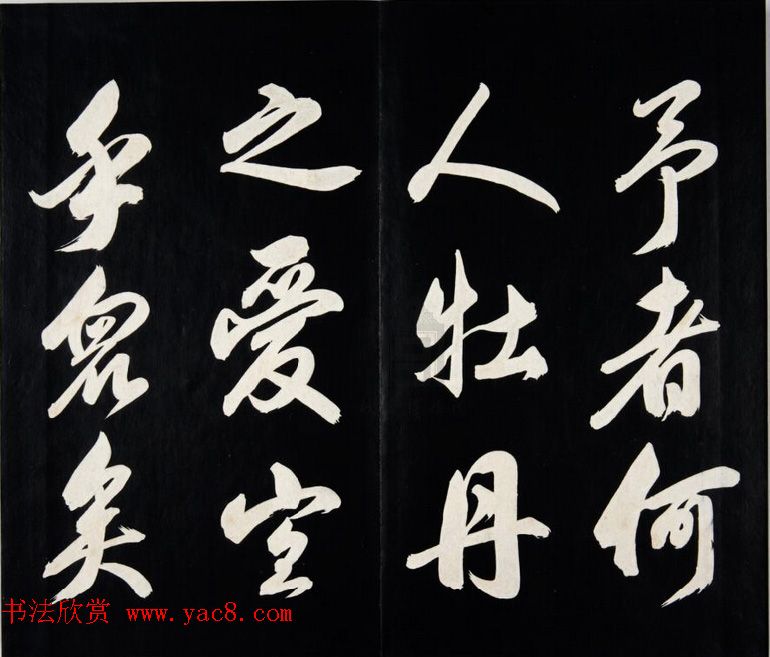 予者何
人牡丹
之爱宜
乎众矣
书法欣赏 www.yac8.com